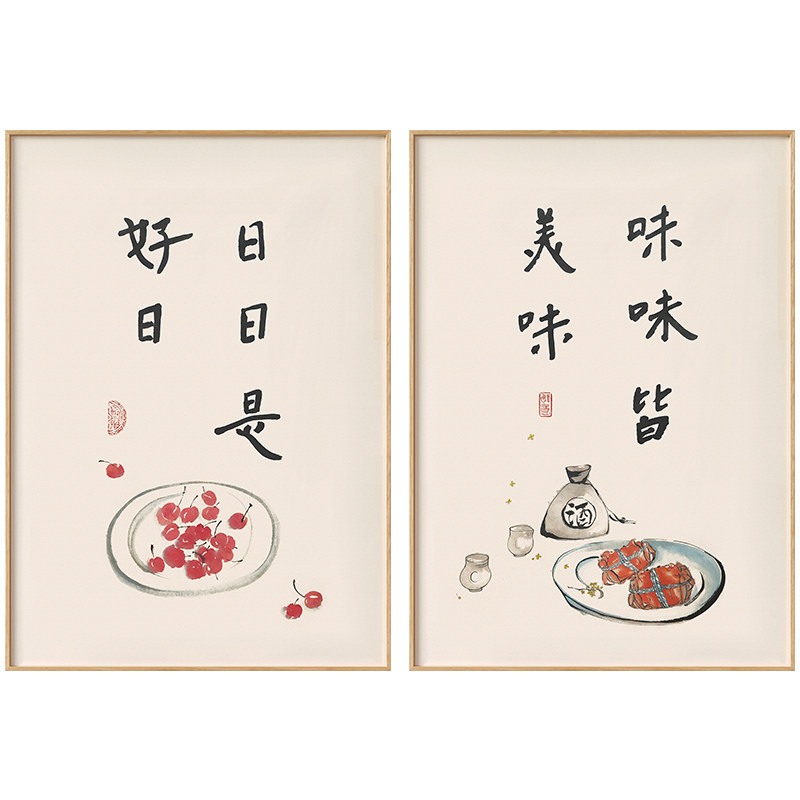 日日是
好日
味味皆
美味
酒